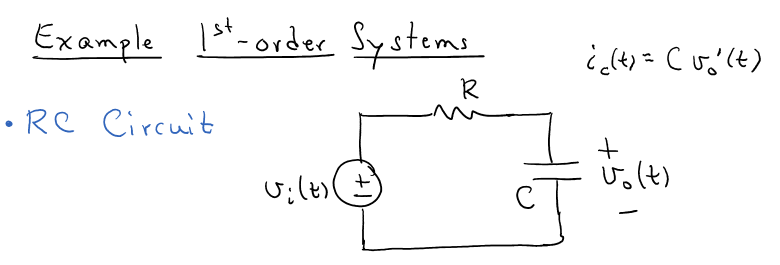 Example 1st-order Systems
i_c(t) = C v_o'(t)
• RC Circuit
R
v_i(t)
+
-
C
+
v_o(t)
-